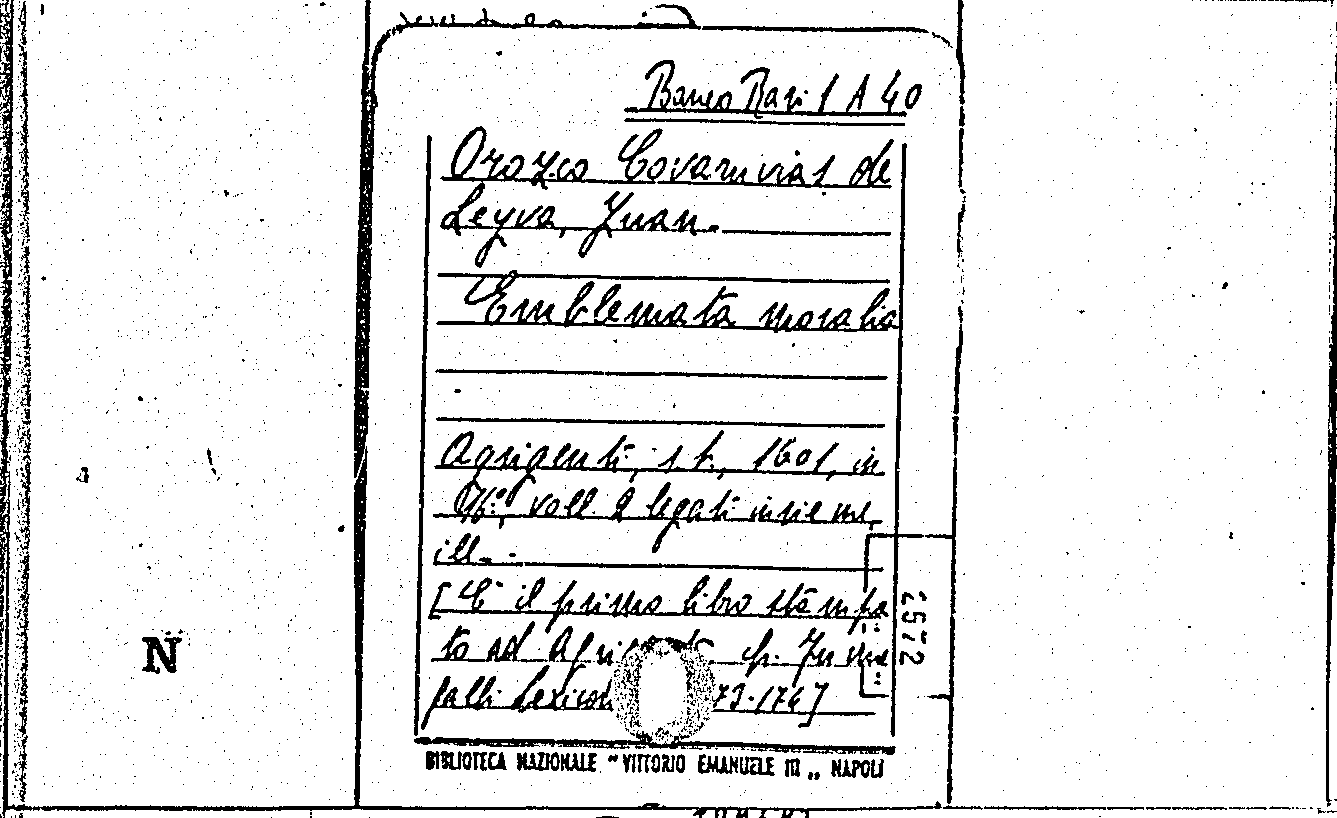 Banco Rari 1 A 40
Orozco Covaruvias de
Leyva, Juan.
Emblemata moralia
Agrigenti, s.t., 1601, in
16°, voll. 2 legati insieme,
ill.
[È il primo libro stampa
to ad cfr. Fuma
galli Lexicon 73-174]
2572
N
BIBLIOTECA NAZIONALE "VITTORIO EMANUELE III" NAPOLI